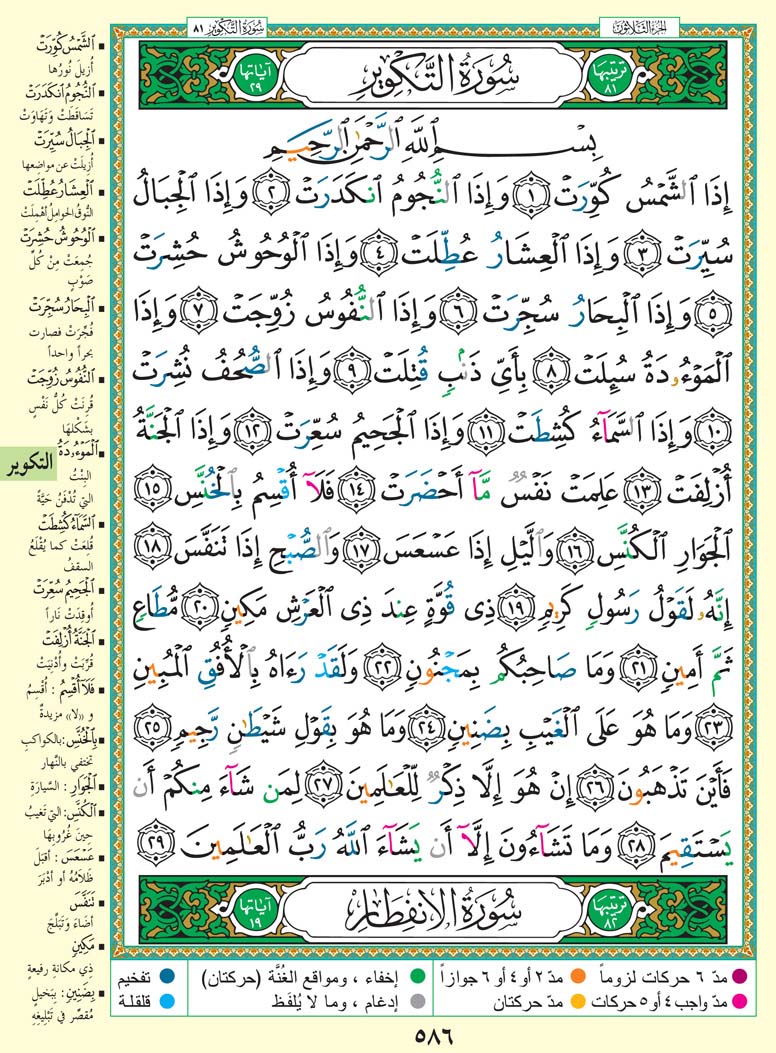 الجزء الثلاثون
سورة التكوير ٨١
ترتيبها ٨١
سُورَةُ التَّكْوِيرِ
آياتها ٢٩
بِسْمِ ٱللَّهِ ٱلرَّحْمَٰنِ ٱلرَّحِيمِ
إِذَا ٱلشَّمْسُ كُوِّرَتْ ١ وَإِذَا ٱلنُّجُومُ ٱنكَدَرَتْ ٢ وَإِذَا ٱلْجِبَالُ
سُيِّرَتْ ٣ وَإِذَا ٱلْعِشَارُ عُطِّلَتْ ٤ وَإِذَا ٱلْوُحُوشُ حُشِرَتْ
٥ وَإِذَا ٱلْبِحَارُ سُجِّرَتْ ٦ وَإِذَا ٱلنُّفُوسُ زُوِّجَتْ ٧ وَإِذَا
ٱلْمَوْءُۥدَةُ سُئِلَتْ ٨ بِأَىِّ ذَنۢبٍ قُتِلَتْ ٩ وَإِذَا ٱلصُّحُفُ نُشِرَتْ
١٠ وَإِذَا ٱلسَّمَآءُ كُشِطَتْ ١١ وَإِذَا ٱلْجَحِيمُ سُعِّرَتْ ١٢ وَإِذَا ٱلْجَنَّةُ
أُزْلِفَتْ ١٣ عَلِمَتْ نَفْسٌ مَّآ أَحْضَرَتْ ١٤ فَلَآ أُقْسِمُ بِٱلْخُنَّسِ ١٥
ٱلْجَوَارِ ٱلْكُنَّسِ ١٦ وَٱلَّيْلِ إِذَا عَسْعَسَ ١٧ وَٱلصُّبْحِ إِذَا تَنَفَّسَ ١٨
إِنَّهُۥ لَقَوْلُ رَسُولٍ كَرِيمٍ ١٩ ذِى قُوَّةٍ عِندَ ذِى ٱلْعَرْشِ مَكِينٍ ٢٠ مُّطَاعٍ
ثَمَّ أَمِينٍ ٢١ وَمَا صَاحِبُكُم بِمَجْنُونٍ ٢٢ وَلَقَدْ رَءَاهُ بِٱلْأُفُقِ ٱلْمُبِينِ
٢٣ وَمَا هُوَ عَلَى ٱلْغَيْبِ بِضَنِينٍ ٢٤ وَمَا هُوَ بِقَوْلِ شَيْطَٰنٍ رَّجِيمٍ ٢٥
فَأَيْنَ تَذْهَبُونَ ٢٦ إِنْ هُوَ إِلَّا ذِكْرٌ لِّلْعَٰلَمِينَ ٢٧ لِمَن شَآءَ مِنكُمْ أَن
يَسْتَقِيمَ ٢٨ وَمَا تَشَآءُونَ إِلَّآ أَن يَشَآءَ ٱللَّهُ رَبُّ ٱلْعَٰلَمِينَ ٢٩
ترتيبها ٨٢
سُورَةُ الانفِطَار
آياتها ١٩
الشَّمْسُ كُوِّرَتْ
أُزِيلَ نُورُها
النُّجُومُ انكَدَرَتْ
تَسَاقَطَتْ وَتَهَاوَتْ
الْجِبَالُ سُيِّرَتْ
أُزِيلَتْ عن مواضِعها
الْعِشَارُ عُطِّلَتْ
النُّوقُ الحواملُ أُهْمِلَتْ
الْوُحُوشُ حُشِرَتْ
جُمِعَتْ مِنْ كُلِّ
صَوْبٍ
الْبِحَارُ سُجِّرَتْ
فُجِّرَتْ فصارت
بحراً واحداً
النُّفُوسُ زُوِّجَتْ
قُرِنَتْ كُلُّ نَفْسٍ
بِشَكْلِهَا
الْمَوْءُودَةُ
البِنْتُ
التي تُدْفَنُ حَيَّةً
السَّمَاءُ كُشِطَتْ
قُلِعَتْ كما يُقْلَعُ
السقفُ
الْجَحِيمُ سُعِّرَتْ
أُوقِدَتْ نَاراً
الْجَنَّةُ أُزْلِفَتْ
قُرِّبَتْ وأُدْنِيَتْ
فَلَا أُقْسِمُ : أُقْسِمُ
و «لا» مزيدةٌ
بِالْخُنَّسِ : بالكواكبِ
تختفي بالنَّهار
الْجَوَارِ : السَّيارَةِ
الْكُنَّسِ : التي تَغيبُ
حِينَ غُرُوبِهَا
عَسْعَسَ : أقبَلَ
ظَلَامُهُ أو أَدْبَرَ
تَنَفَّسَ
أضَاءَ وَتَبَلَّجَ
مَكِينٍ
ذِي مكانةٍ رفيعةٍ
بِضَنِينٍ : بِبَخيلٍ
مُقَصِّرٍ في تَبْلِيغِهِ
التكوير
مدّ ٦ حركات لزوماً
مدّ ٢ أو ٤ أو ٦ جوازاً
إخفاء ، ومواقع الغُنَّة (حركتان)
تفخيم
مدّ واجب ٤ أو ٥ حركات
مدّ حركتان
إدغام ، وما لا يُلفَظ
قلقلة
٥٨٦